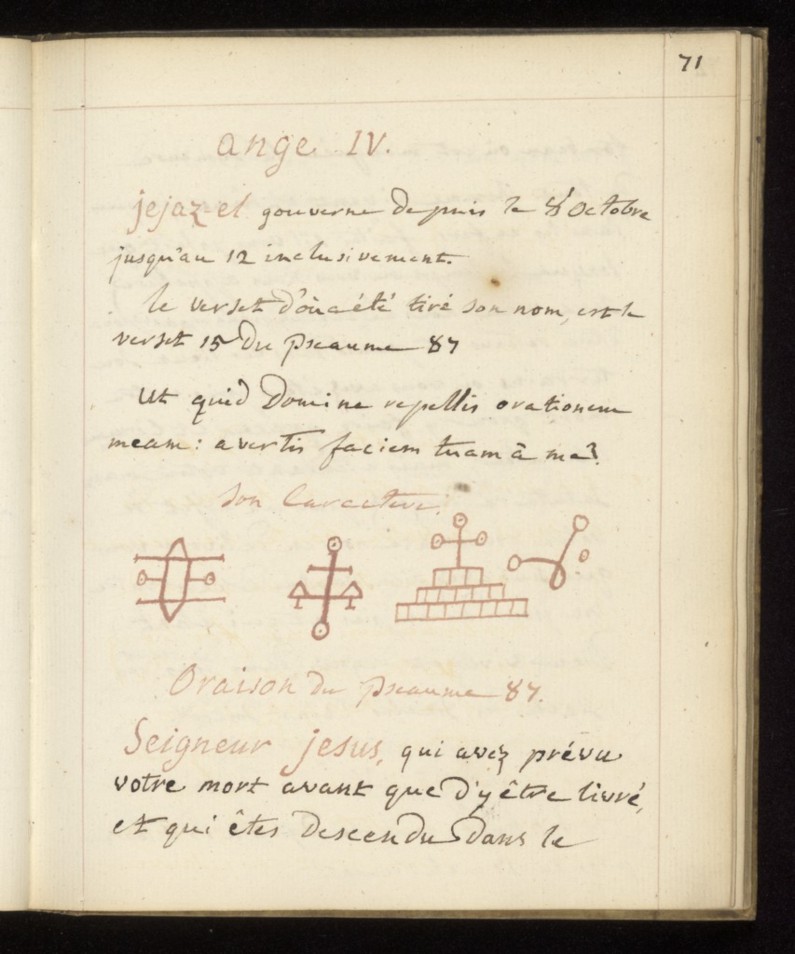 71
Ange IV.
jejazel gouverne depuis le 8 Octobre
jusqu'au 12 inclusivement.
le verset d'où a été tiré son nom, est le
verset 15 du pseaume 87
Ut quid Domine repellis orationem
meam: avertis faciem tuam à me?
Son Caractere.
Oraison du pseaume 87.
Seigneur jesus, qui avez prévu
votre mort avant que d'y être livré,
et qui êtes descendu dans le